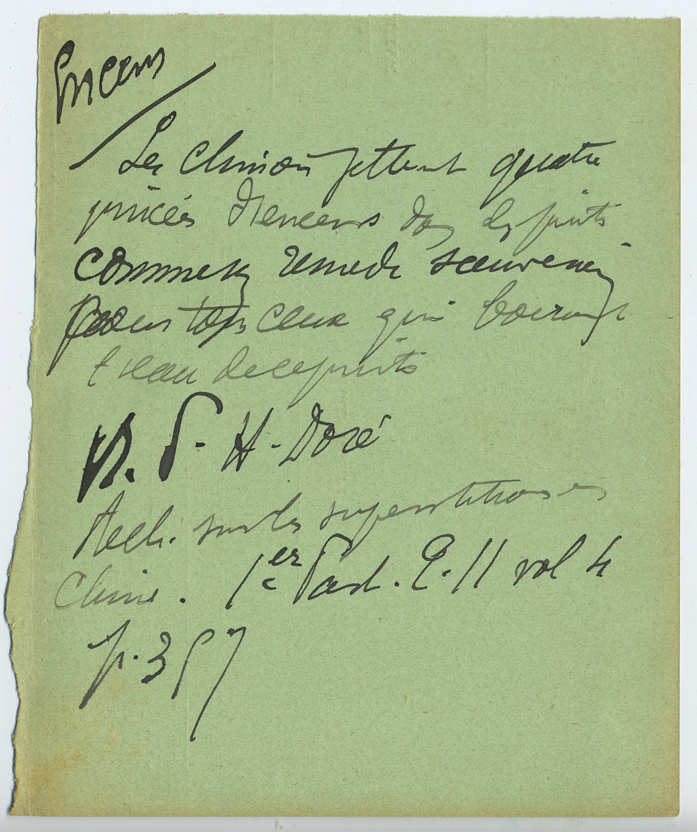 Encens
Les Chinois jettent quatre
pincées d'encens dans les puits
comme remède souverain
pour tous ceux qui boiront
l'eau de ces puits
R. P. H. Doré
Rech. sur les superstitions en
Chine. 1er Part. T. II vol 4
p. 357